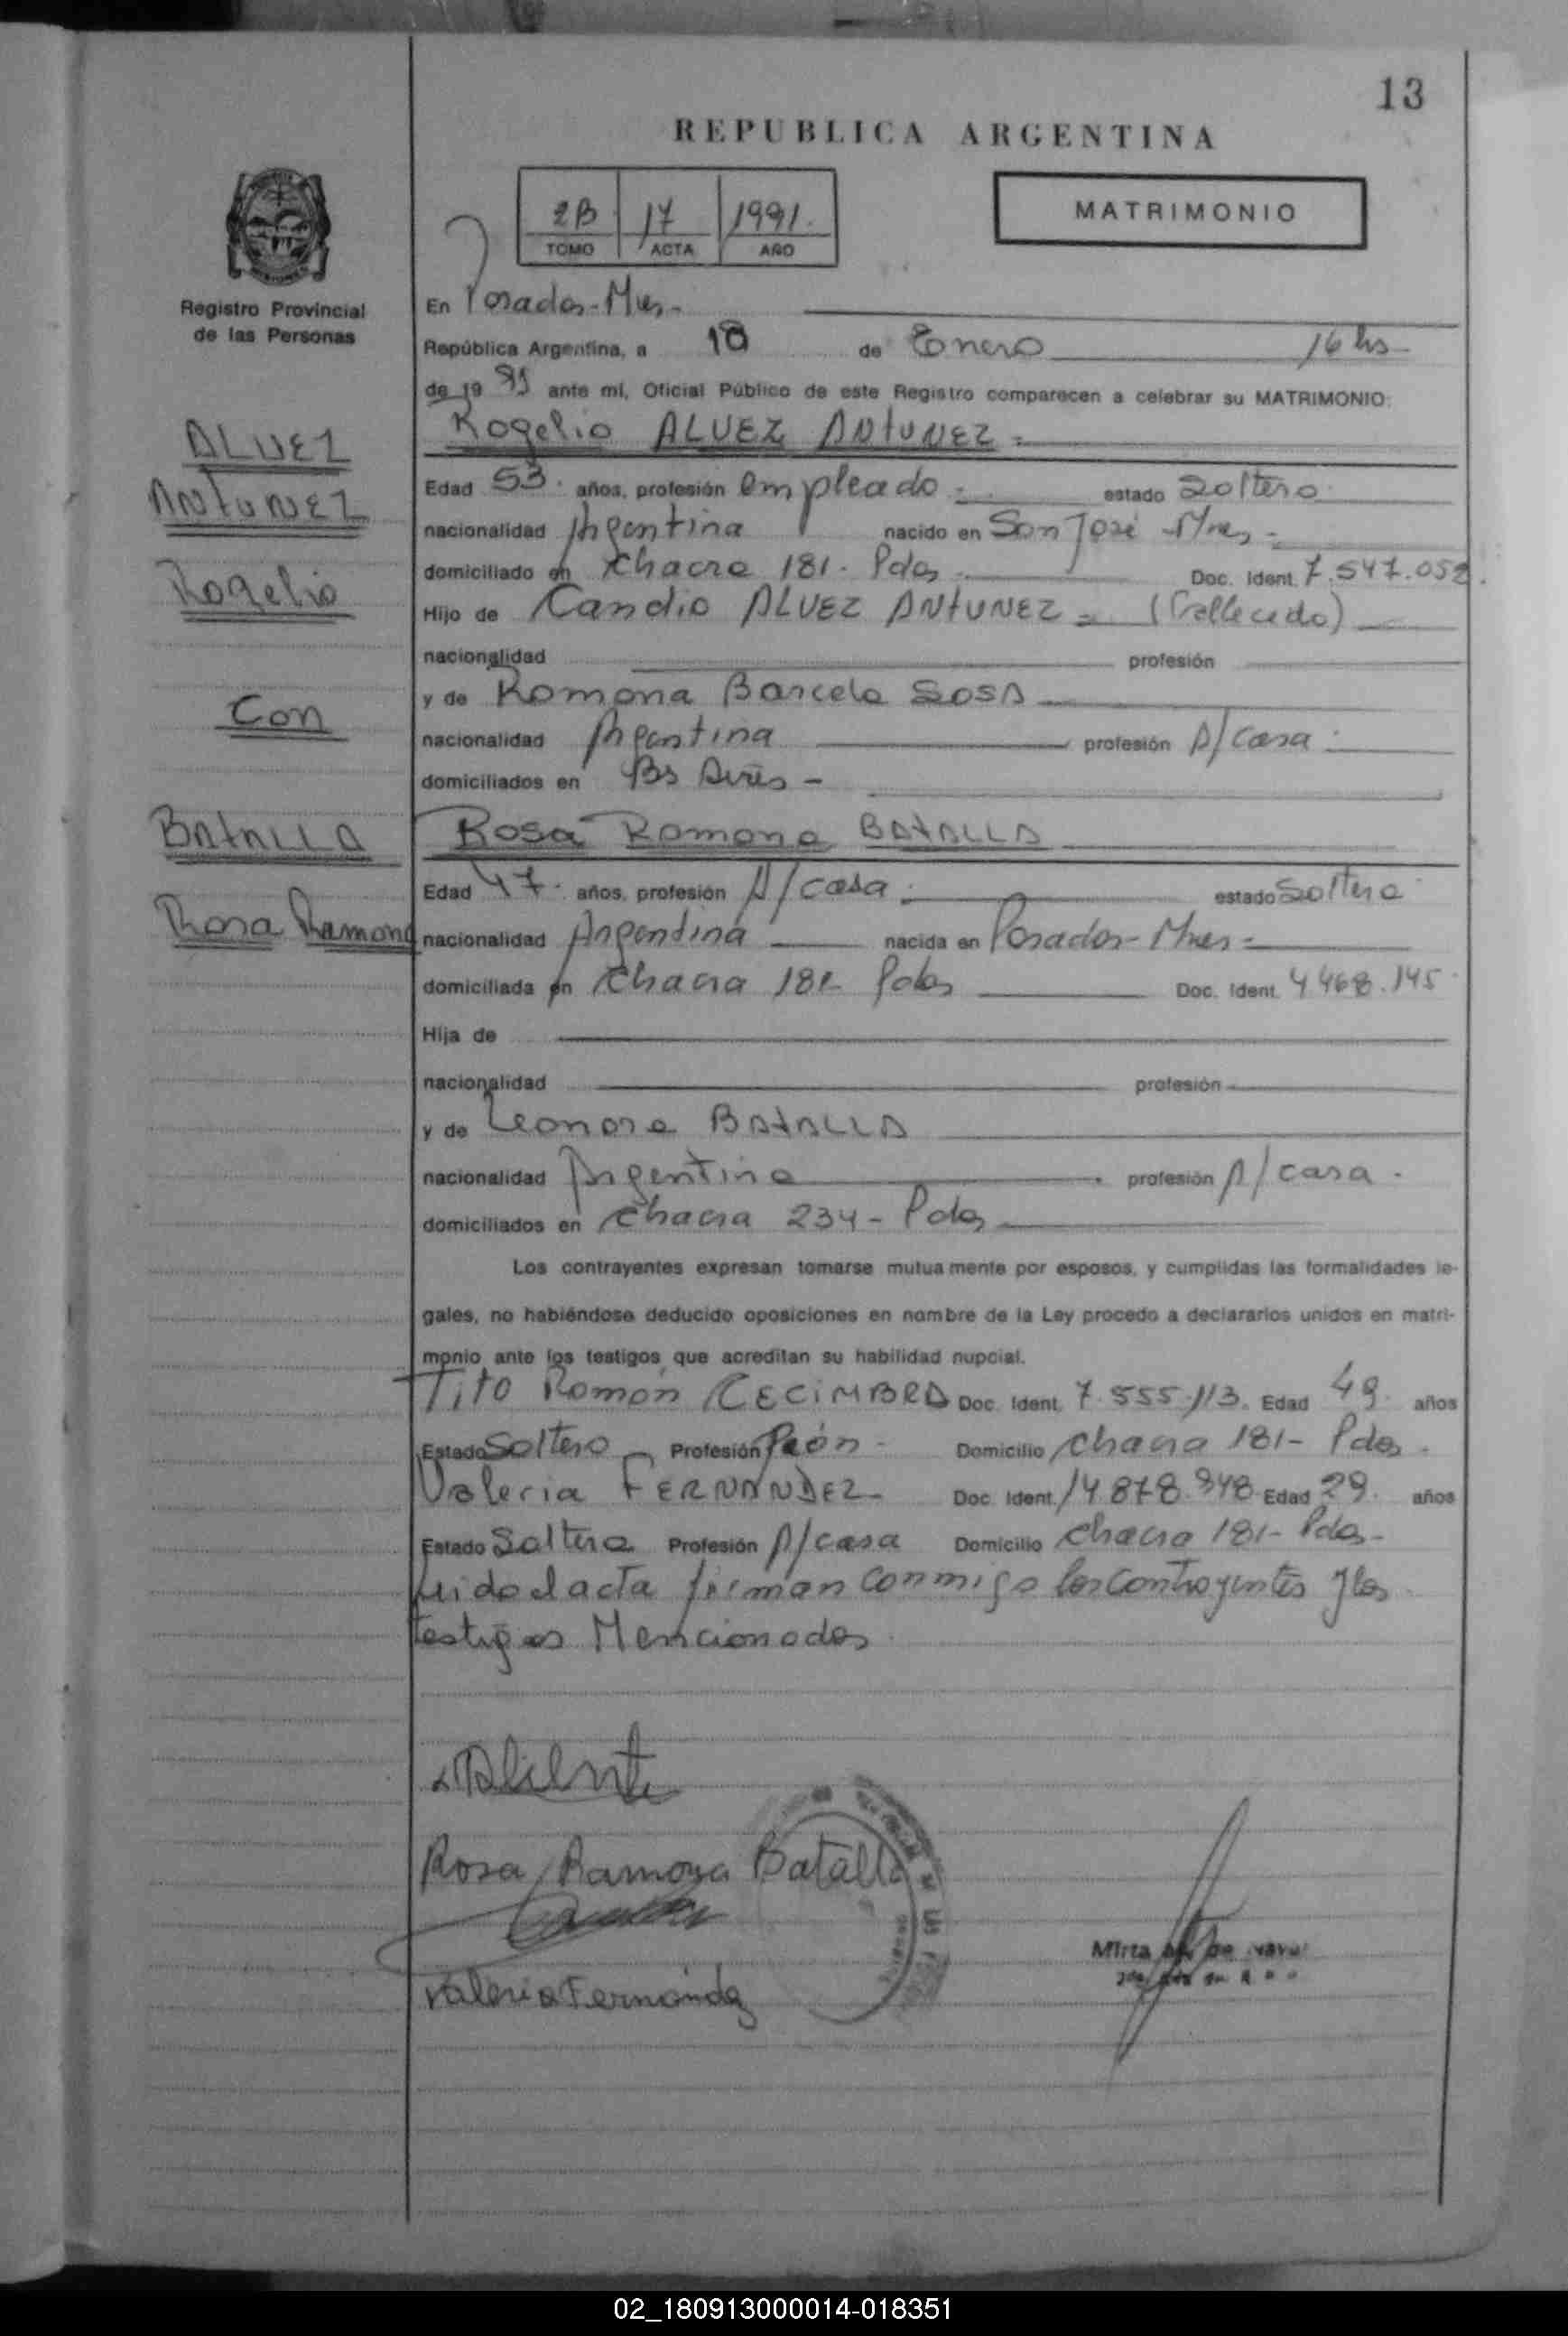 13
REPUBLICA ARGENTINA
2B 17 1991.
TOMO ACTA AÑO
MATRIMONIO
Registro Provincial
de las Personas
En Posadas-Mnes-
República Argentina, a 18 de Enero 16 hs
de 19 91 ante mi, Oficial Público de este Registro comparecen a celebrar su MATRIMONIO:
ALVEZ
ANTUNEZ
Rogelio
Con
BATALLA
Rosa Ramona
Rogelio ALVEZ ANTUNEZ
Edad 53 años, profesión empleado estado Soltero
nacionalidad Argentina nacido en San José Mnes
domiciliado en Chacra 181- Pdas Doc. Ident. 7.547.052.
Hijo de Candio ALVEZ ANTUNEZ (Fallecido)
nacionalidad profesión
y de Ramona Barcela SOSA
nacionalidad Argentina profesión A/casa
domiciliados en Bs Aires -
Rosa Ramona BATALLA
Edad 47 años, profesión A/casa estado Soltera
nacionalidad Argentina nacida en Posadas-Mnes
domiciliada en Chacra 181 Pdas Doc. Ident. 4.468.145
Hija de
nacionalidad profesión
y de Leonora BATALLA
nacionalidad Argentina profesión A/casa.
domiciliados en Chacra 234- Pdas
Los contrayentes expresan tomarse mutuamente por esposos, y cumplidas las formalidades le-
gales, no habiéndose deducido oposiciones en nombre de la Ley procedo a declararlos unidos en matri-
monio ante los testigos que acreditan su habilidad nupcial.
Tito Ramón Doc. Ident. 7.555.113. Edad 49 años
Estado Soltero Profesión Peón - Domicilio Chacra 181- Pdas.
Valeria FERNANDEZ- Doc. Ident. 14.878.948 Edad 29. años
Estado Soltera Profesión A/casa Domicilio Chacra 181- Pdas-
Leido el acta firman conmigo los contrayentes y los
testigos Mencionados.
Rosa Ramona Batalla
Valeria Fernández
Mirta de
02_180913000014-018351